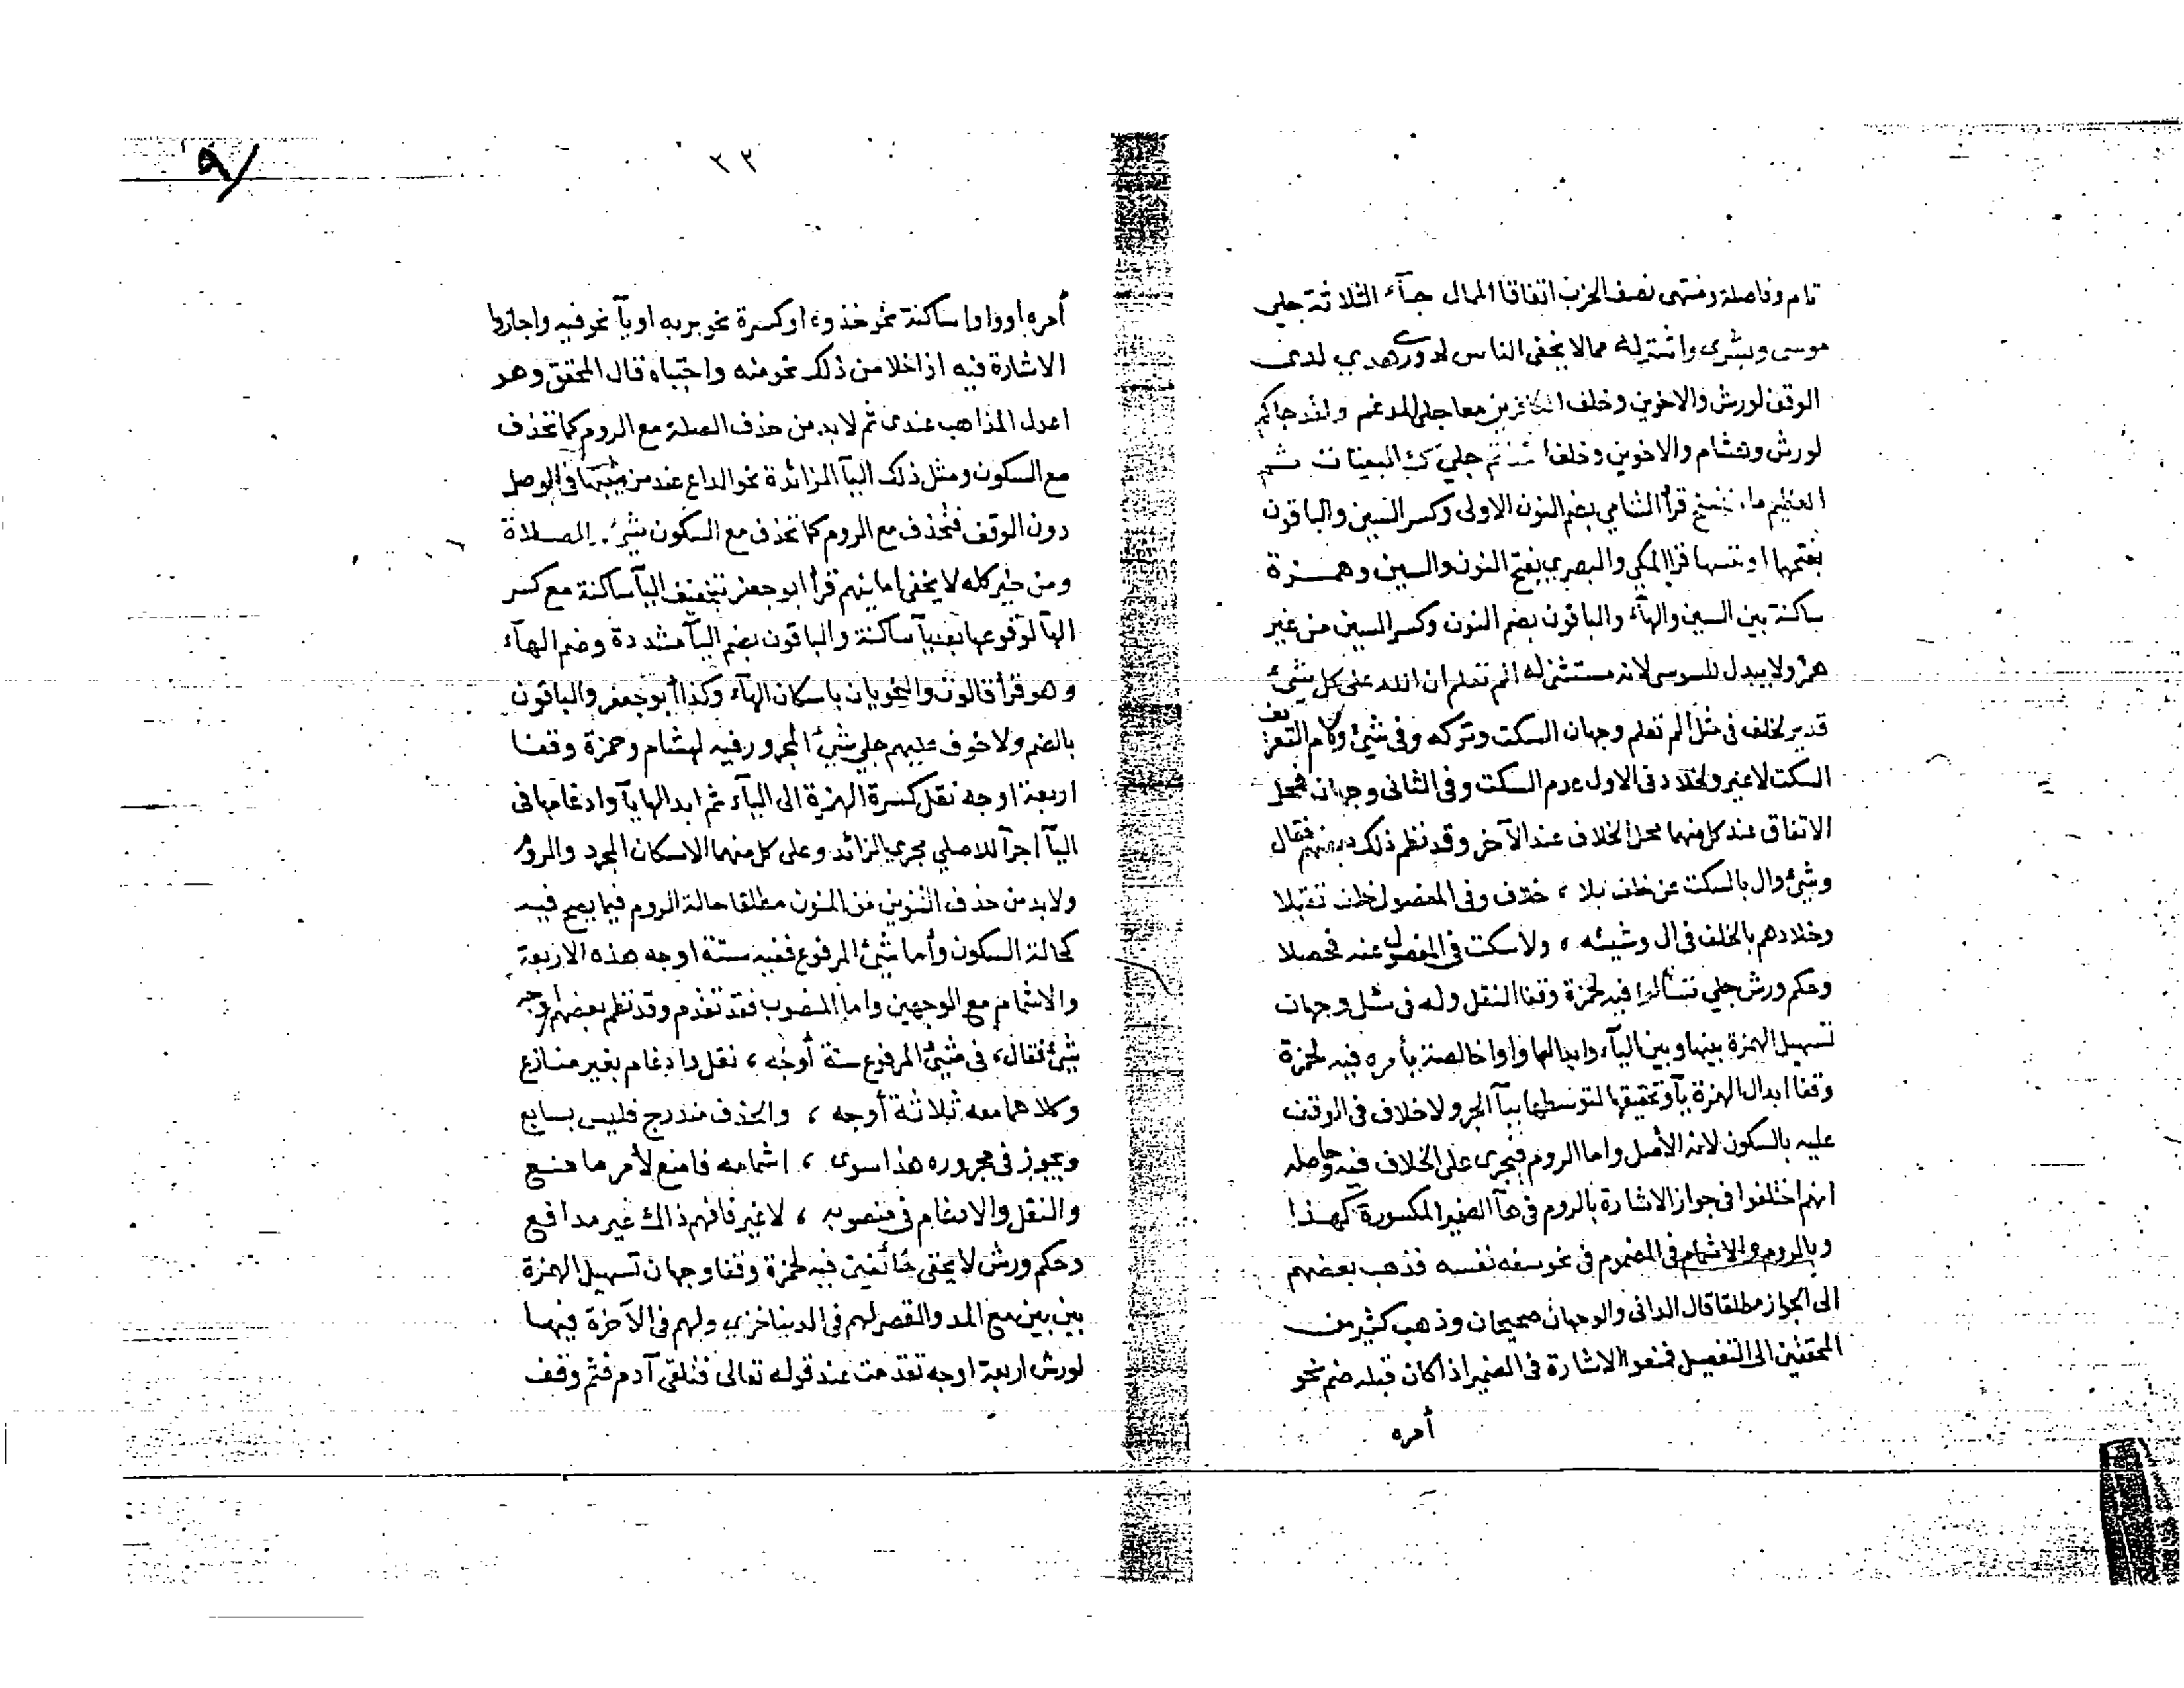 تام وفاصلة ومنتهى نصف الحزب اتفاقا الممال جآء الثلاثة جلي
موسى وبشرى واشتراه مما لا يخفى الناس لدورى هدي لدى
الوقف لورش والاخوين وخلف الكافرين معا جلي المدغم ولقد جاكم
لورش وهشام والاخوين وخلف اتخذتم جلي ك البينات ثم
العظيم ما ننسخ قرأ الشامي بضم النون الاولى وكسر السين والباقون
بفتحهما او ننسها قرا المكي والبصري بفتح النون والسين وهمزة
ساكنة بين السين والهآء والباقون بضم النون وكسر السين من غير
همز ولا يبدل للسوسي لانه مستثنى له الم تعلم ان الله على كل شيئ
قدير لخلف في مثل الم تعلم وجهان السكت وتركه وفى شيئ ولام التعريف
السكت لا غير ولخلاد فى الاول عدم السكت وفى الثانى وجهان فمحل
الاتفاق عند كل منهما محل الخلاف عند الآخر وقد نظم ذلك بعضهم فقال
وشيئ وال بالسكت عن خلف بلا ، خلاف وفى المفصول خلف تقبلا
وخلادهم بالخلف فى ال وشيئه ، ولا سكت فى المفصول عنه فحصلا
وحكم ورش جلي تسألوا فيه لحمزة وقفا النقل وله فى سئل وجهان
تسهيل الهمزة بينها وبين اليآء وابدالها واوا خالصة بأمره فيه لحمزة
وقفا ابدال الهمزة يآ وتحقيقها لتوسطها ببآ الجر ولا خلاف فى الوقف
عليه بالسكون لانه الأصل واما الروم فيجرى على الخلاف فيه وحاصله
انهم اختلفوا فى جواز الاشارة بالروم فى هآ الضمير المكسورة كهذا
وبالروم والاشمام فى المضموم فى نحو سفه نفسه فذهب بعضهم
الى الجواز مطلقا قال الدانى والوجهان صحيحان وذهب كثير من
المحققين الى التفصيل فمنعوا الاشارة فى الضمير اذا كان قبله ضم نحو
أمره
٢٢
٩/
أمره او واوا ساكنة نحو خذوه او كسرة نحو بربه او يآ نحو فيه واجازوا
الاشارة فيه اذا خلا من ذلك نحو منه واجتباه قال المحقق وهو
اعدل المذاهب عندى ثم لا بد من حذف الصلة مع الروم كما تحذف
مع السكون ومثل ذلك اليآ الزائدة نحو الداع عند من يثبتها فى الوصل
دون الوقف فتحذف مع الروم كما تحذف مع السكون شيئ الصلاة
ومن خير كله لا يخفى امانيهم قرأ ابو جعفر بتخفيف اليآ ساكنة مع كسر
الهآ لوقوعها بعد يآ ساكنة والباقون بضم اليآ مشددة وضم الهآء
وهو قرأ قالون والنحويان باسكان الهآء وكذا أبو جعفر والباقون
بالضم ولا خوف عليهم جلي شيئ المجرور فيه لهشام وحمزة وقفا
اربعة اوجه نقل كسرة الهمزة الى اليآء ثم ابدالها يآ وادغامها فى
اليآ اجرآ للاصلي مجرى الزائد وعلى كل منهما الاسكان المجرد والروم
ولا بد من حذف التنوين من المنون مطلقا حالة الروم فيما يصح فيه
كحالة السكون وأما شيئ المرفوع ففيه ستة اوجه هذه الاربعة
والاشمام مع الوجهين واما المنصوب فقد تقدم وقد نظم بعضهم أوجه
شيئ فقال ، فى شيئ المرفوع ستة أوجه ، نقل وادغام بغير منازع
وكلاهما معه ثلاثة أوجه ، والحذف مندرج فليس بسابع
ويجوز فى مجروره هذا سوى ، اشمامه فامنع لأمر مانع
والنقل والادغام فى منصوبه ، لا غير فافهم ذاك غير مدافع
وحكم ورش لا يخفى خائفين فيه لحمزة وقفا وجهان تسهيل الهمزة
بين بين مع المد والقصر لهم فى الدنيا خزي ولهم فى الآخرة فيها
لورش اربعة اوجه تقدمت عند قوله تعالى فتلقى آدم فثم وقف